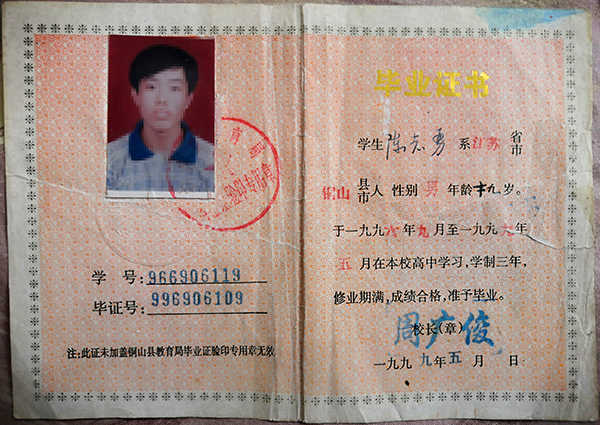 学号：966906119
毕证号：996906109
注：此证未加盖铜山县教育局毕业证验印专用章无效
育局
验印专用章
毕业证书
学生 陈志勇 系江苏 省市
铜山 县市人 性别 男 年龄十九岁。
于一九九六年九月至一九九九年
五月在本校高中学习，学制三年，
修业期满，成绩合格，准予毕业。
校长(章)
周广俊
一九九九年五月 日